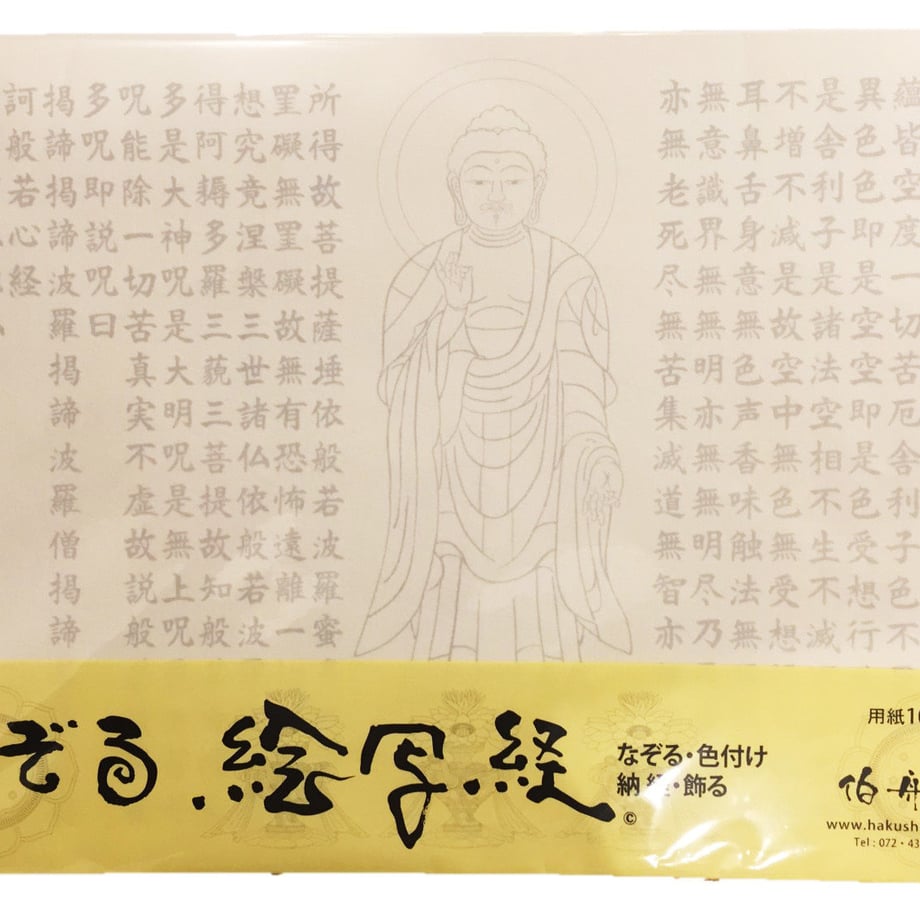 蘊皆空度一切苦厄舎利子色不
異色色即是空空即是色受想行
是舎利子是諸法空相不生不滅
不増不減是故空中無色無受想
耳鼻舌身意無色声香味触法無
無意識界無無明亦無無明尽乃
亦無老死尽無苦集滅道無智亦
所得故菩提薩埵依般若波羅蜜
罣礙無罣礙故無有恐怖遠離一
想究竟涅槃三世諸仏依般若波
得阿耨多羅三藐三菩提故知般
多是大神呪是大明呪是無上呪
呪能除一切苦真実不虚故説般
多呪即説呪曰
掲諦掲諦波羅掲諦波羅僧掲諦
訶般若心経
ぞる 絵写経
©
なぞる・色付け
納経・飾る
用紙10
伯丹
www.hakush
Tel : 072・43